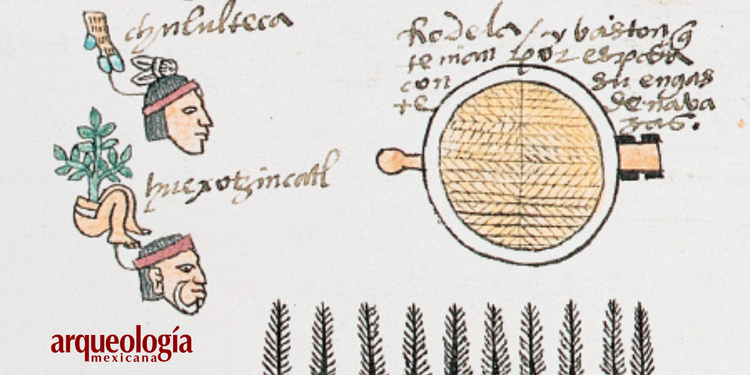 chululteca
huexotzincatl
Rodela / y baston q
tenian por espada
con su engas
te de nava
xas.
arqueología
mexicana